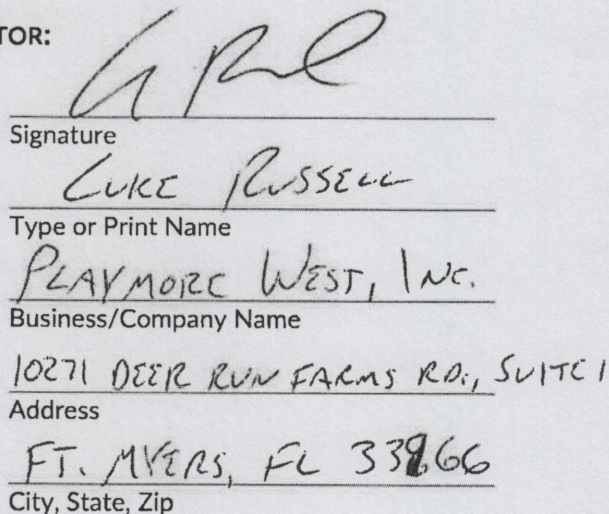 TOR:
Signature
LUKE RUSSELL
Type or Print Name
PLAYMORE WEST, INC.
Business/Company Name
10271 DEER RUN FARMS RD., SUITE 1
Address
FT. MYERS, FL 33966
City, State, Zip